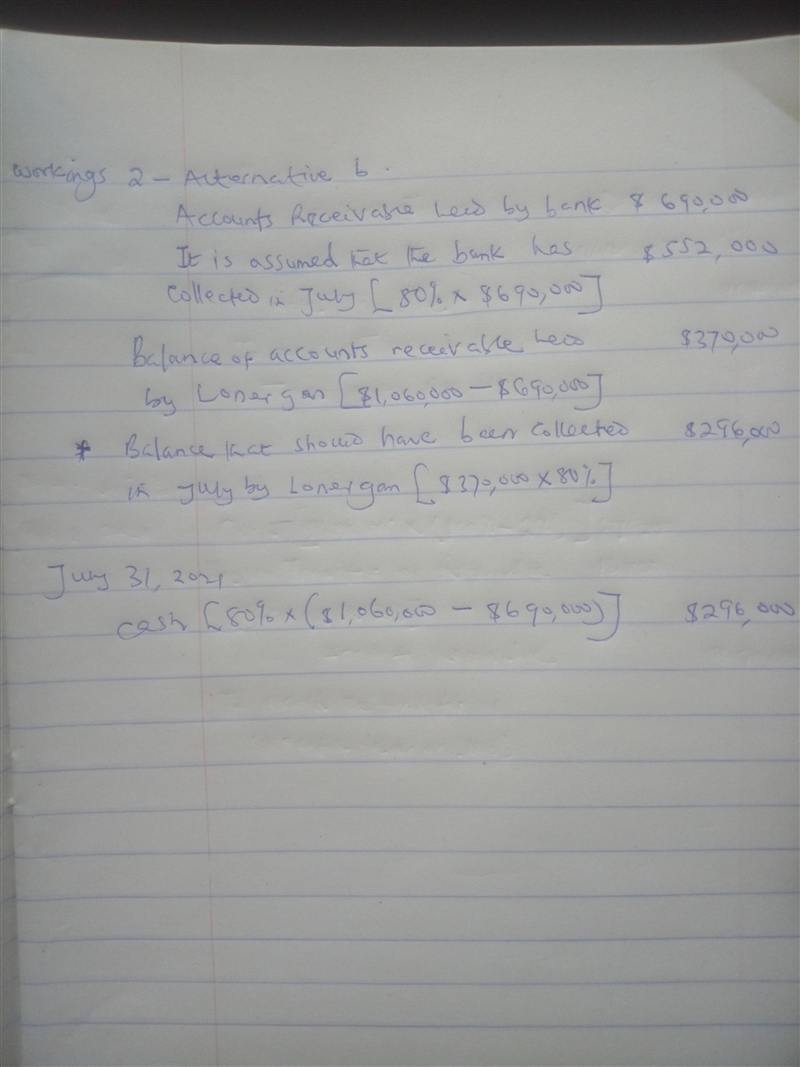 Workings 2 - Alternative b.
Accounts Receivable held by bank $690,000
It is assumed that the bank has $552,000
collected in July [80% x $690,000]
Balance of accounts receivable held $370,000
by Lonergan [$1,060,000 - $690,000]
* Balance that should have been collected $296,000
in July by Lonergan [$370,000 x 80%]
July 31, 2021
cash [80% x ($1,060,000 - $690,000)] $296,000